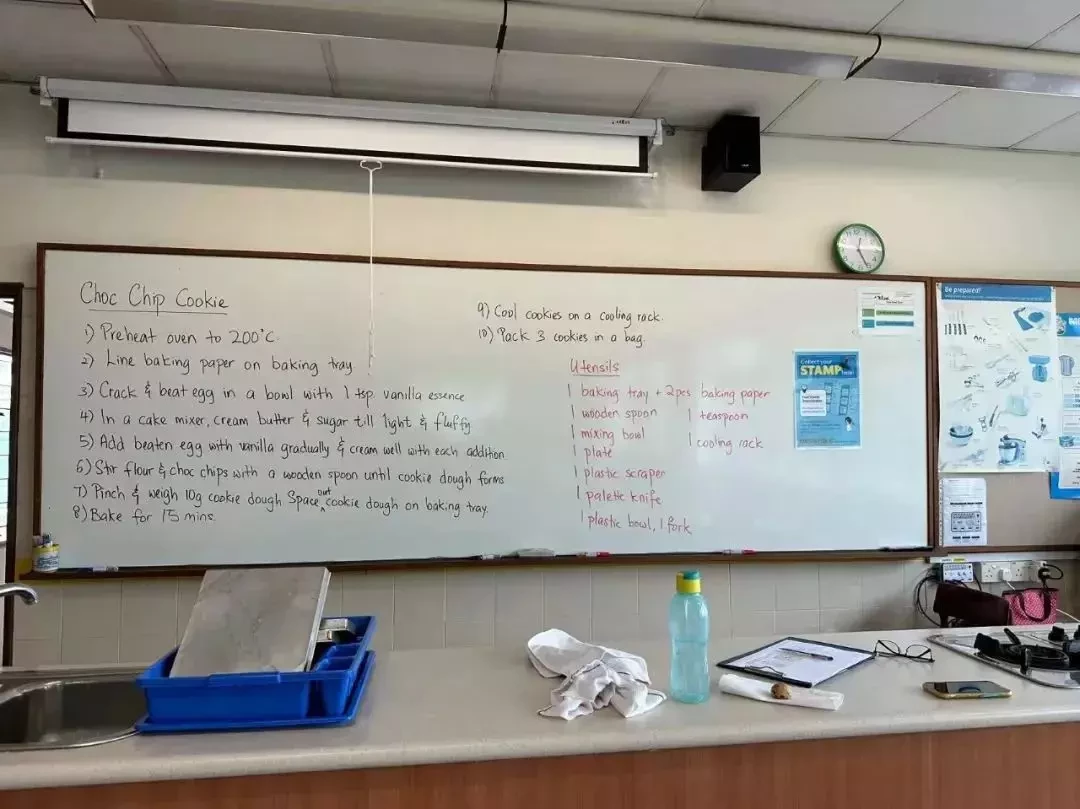 Choc Chip Cookie
1) Preheat oven to 200°C.
2) Line baking paper on baking tray.
3) Crack & beat egg in a bowl with 1 tsp. vanilla essence
4) In a cake mixer, cream butter & sugar till light & fluffy
5) Add beaten egg with vanilla gradually & cream well with each addition
6) Stir flour & choc chips with a wooden spoon until cookie dough forms
7) Pinch & weigh 10g cookie dough Space out cookie dough on baking tray.
8) Bake for 15 mins.
9) Cool cookies on a cooling rack.
10) Pack 3 cookies in a bag.
Utensils
1 baking tray + 2pcs baking paper
1 wooden spoon
1 mixing bowl
1 plate
1 plastic scraper
1 palette knife
1 plastic bowl, 1 fork
1 teaspoon
1 cooling rack
Collect your
STAMP
Be prepared!